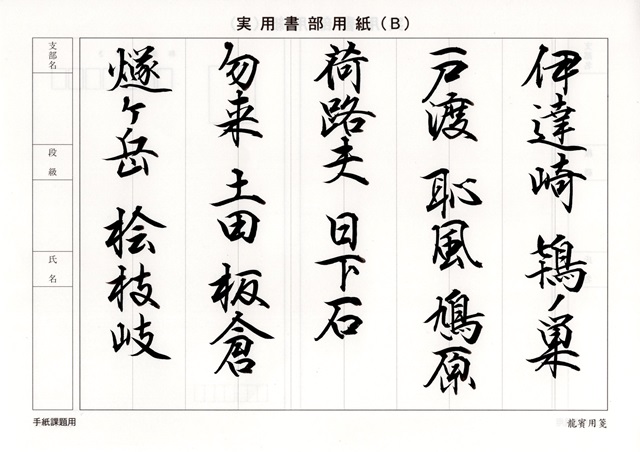 実用書部用紙(B)
伊達崎 ノ巣
戸渡 恥風 鳩原
荷路夫 日下石
勿来 土田 板倉
燧ヶ岳 桧枝岐
支部名
段級
氏名
手紙課題用
龍賓用箋